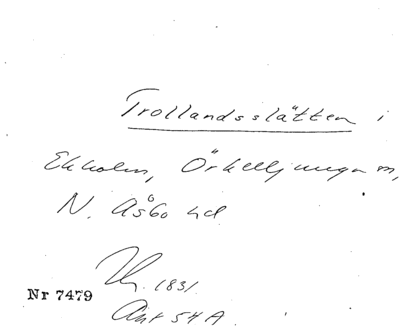 Trollandsslätten i
Ekholm, Örkelljunga sn,
N. Åsbo hd
1831.
Nr 7479
Akt 54 A.